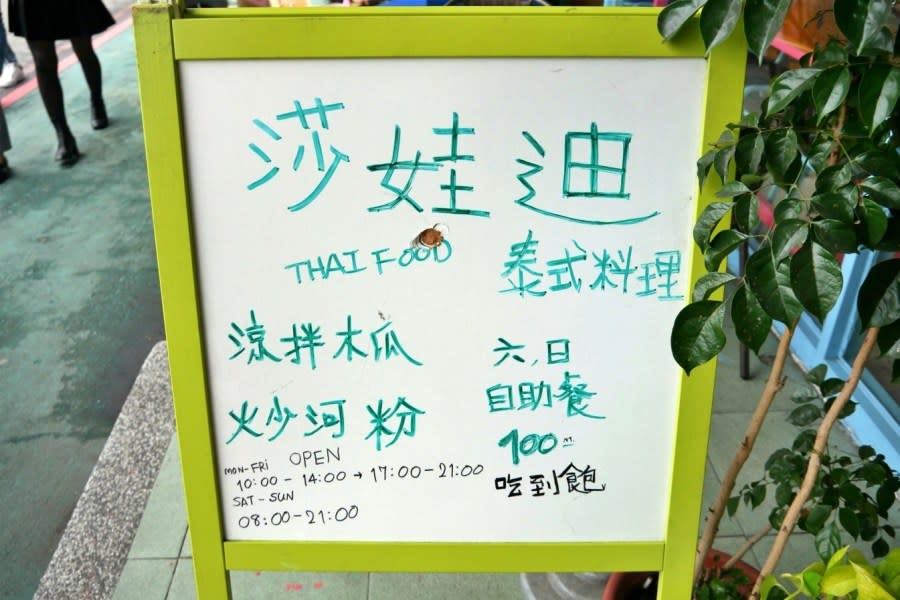 莎娃迪
THAI FOOD 泰式料理
涼拌木瓜
炒河粉
OPEN
MON-FRI
10:00-14:00→17:00-21:00
SAT-SUN
08:00-21:00
六,日
自助餐
100元
吃到飽